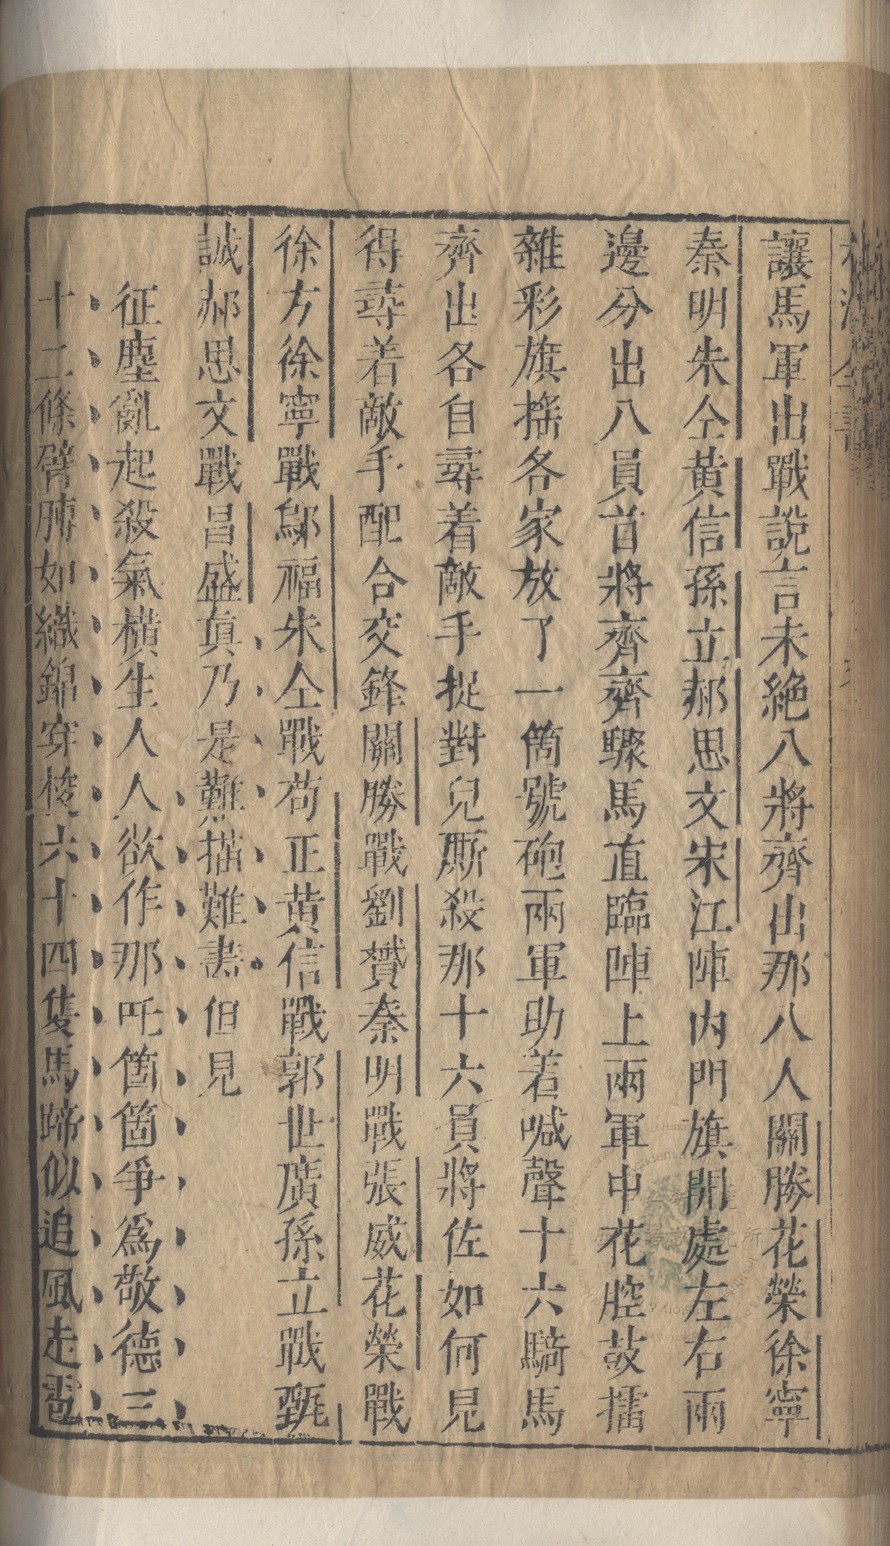 讓馬軍出戰說言未絕八將齊出那八人關勝花榮徐寧
秦明朱仝黃信孫立郝思文宋江陣內門旗開處左右兩
邊分出八員首將齊齊驟馬直臨陣上兩軍中花腔鼓擂
雜彩旗搖各家放了一箇號砲兩軍助着喊聲十六騎馬
齊出各自尋着敵手捉對兒厮殺那十六員將佐如何見
得尋着敵手配合交鋒關勝戰劉贇秦明戰張威花榮戰
徐方徐寧戰鄔福朱仝戰苟正黃信戰郭世廣孫立戰甄
誠郝思文戰昌盛真乃是難描難畫但見
征塵亂起殺氣橫生人人欲作那吒箇箇爭爲敬德三
十二條臂膊如織錦穿梭六十四隻馬蹄似追風走雹